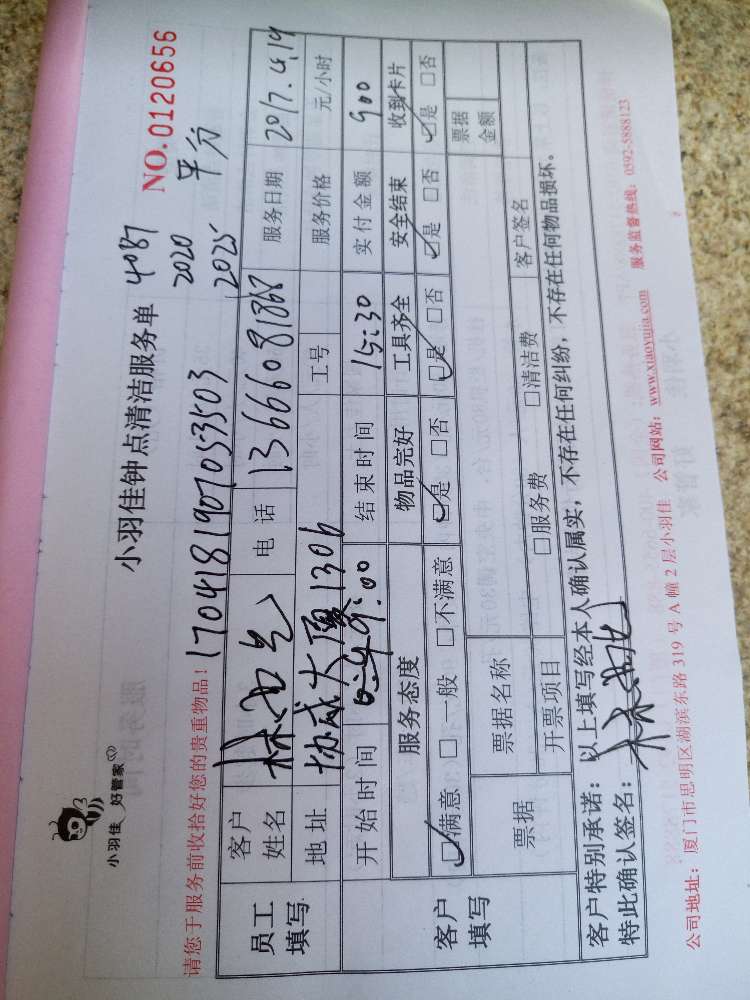 小羽佳 好管家
小羽佳钟点清洁服务单
NO.0120656
4087
2020 平分
2025
请您于服务前收拾好您的贵重物品!
1704181907053503
员工填写
客户姓名 林
电话 13666081868
服务日期 2017.4.19
地址 协成大厦1306
工号
服务价格 元/小时
开始时间 9:00
结束时间 15:30
实付金额 900
客户填写
服务态度 物品完好 工具齐全 安全结束 收到卡片
☑满意 □一般 □不满意 ☑是 □否 ☑是 □否 ☑是 □否 ☑是 □否
票据 票据名称 票据金额
开票项目 □服务费 □清洁费 客户签名
客户特别承诺:以上填写经本人确认属实,不存在任何纠纷,不存在任何物品损坏。
特此确认签名:林
公司地址:厦门市思明区湖滨东路319号A幢2层小羽佳 公司网站:www.xiaoyujia.com 服务监督热线:0592-5888123